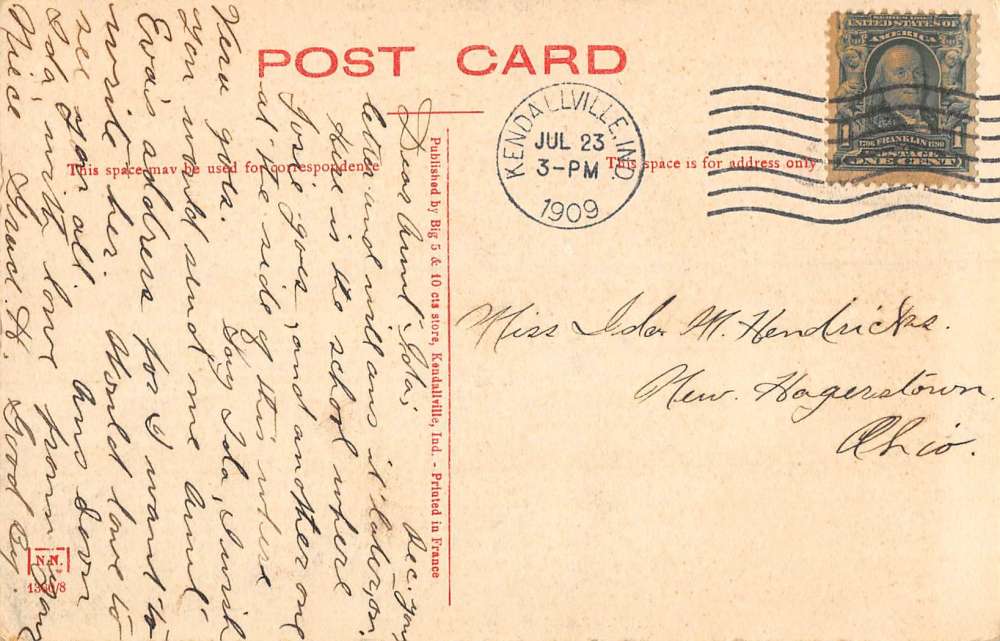 POST CARD
This space may be used for correspondence
This space is for address only
KENDALLVILLE, IND
JUL 23
3-PM
1909
SERIES 1902
UNITED STATES OF
AMERICA
1706 FRANKLIN 1790
POSTAGE
1 ONE CENT 1
Miss Ida M. Hendricks.
New. Hagerstown.
Ohio.
Published by Big 5 & 10 cts store, Kendallville, Ind. - Printed in France
Dear Aunt Ida; Rec. your
letter and will ans it later, on.
this is the school where
Josie goes, and another one
at the side of this where
Vera goes. Say Ida, I wish
you would send me Aunt
Eva's address for I want to
write her. Would love to
see you all Ans soon
Ida with love from your
Niece Grace. H. Good By.
N.N.